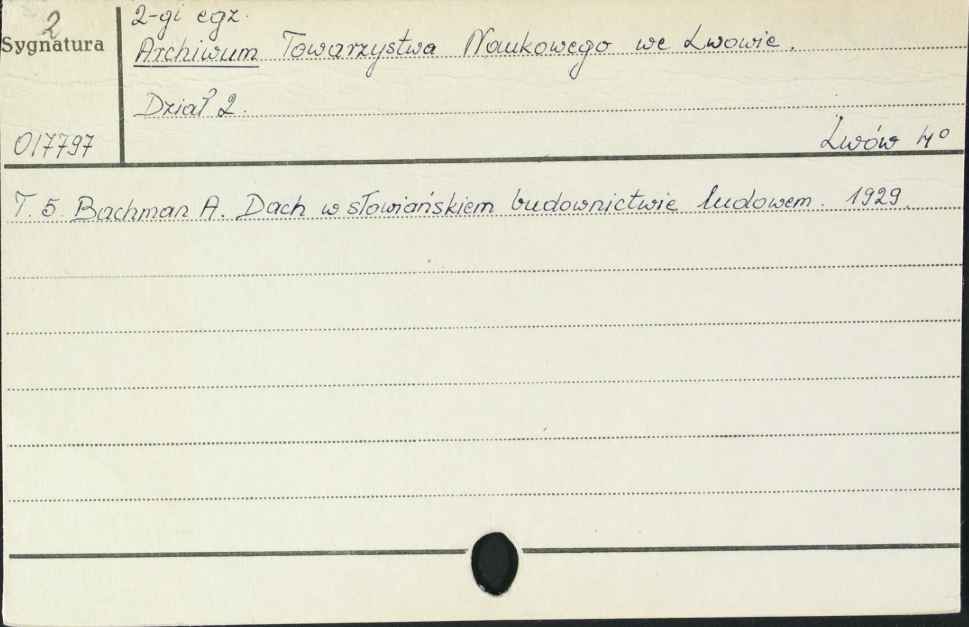 2
2-gi egz.
Sygnatura
Archiwum Towarzystwa Naukowego we Lwowie.
Dział 2.
017797
Lwów 4°
T. 5. Bachman A. Dach w słowiańskiem budownictwie ludowem. 1929.